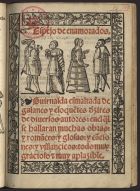 Espejo de enamorados.
Guirnalda esmaltada de
galanes y eloquẽtes dezires
de diuersos autores: en el q̃l
se hallaran muchas obras
y romãces y glosas y cãcio
nes y villancicos: todo muy
gracioso y muy aplasible.